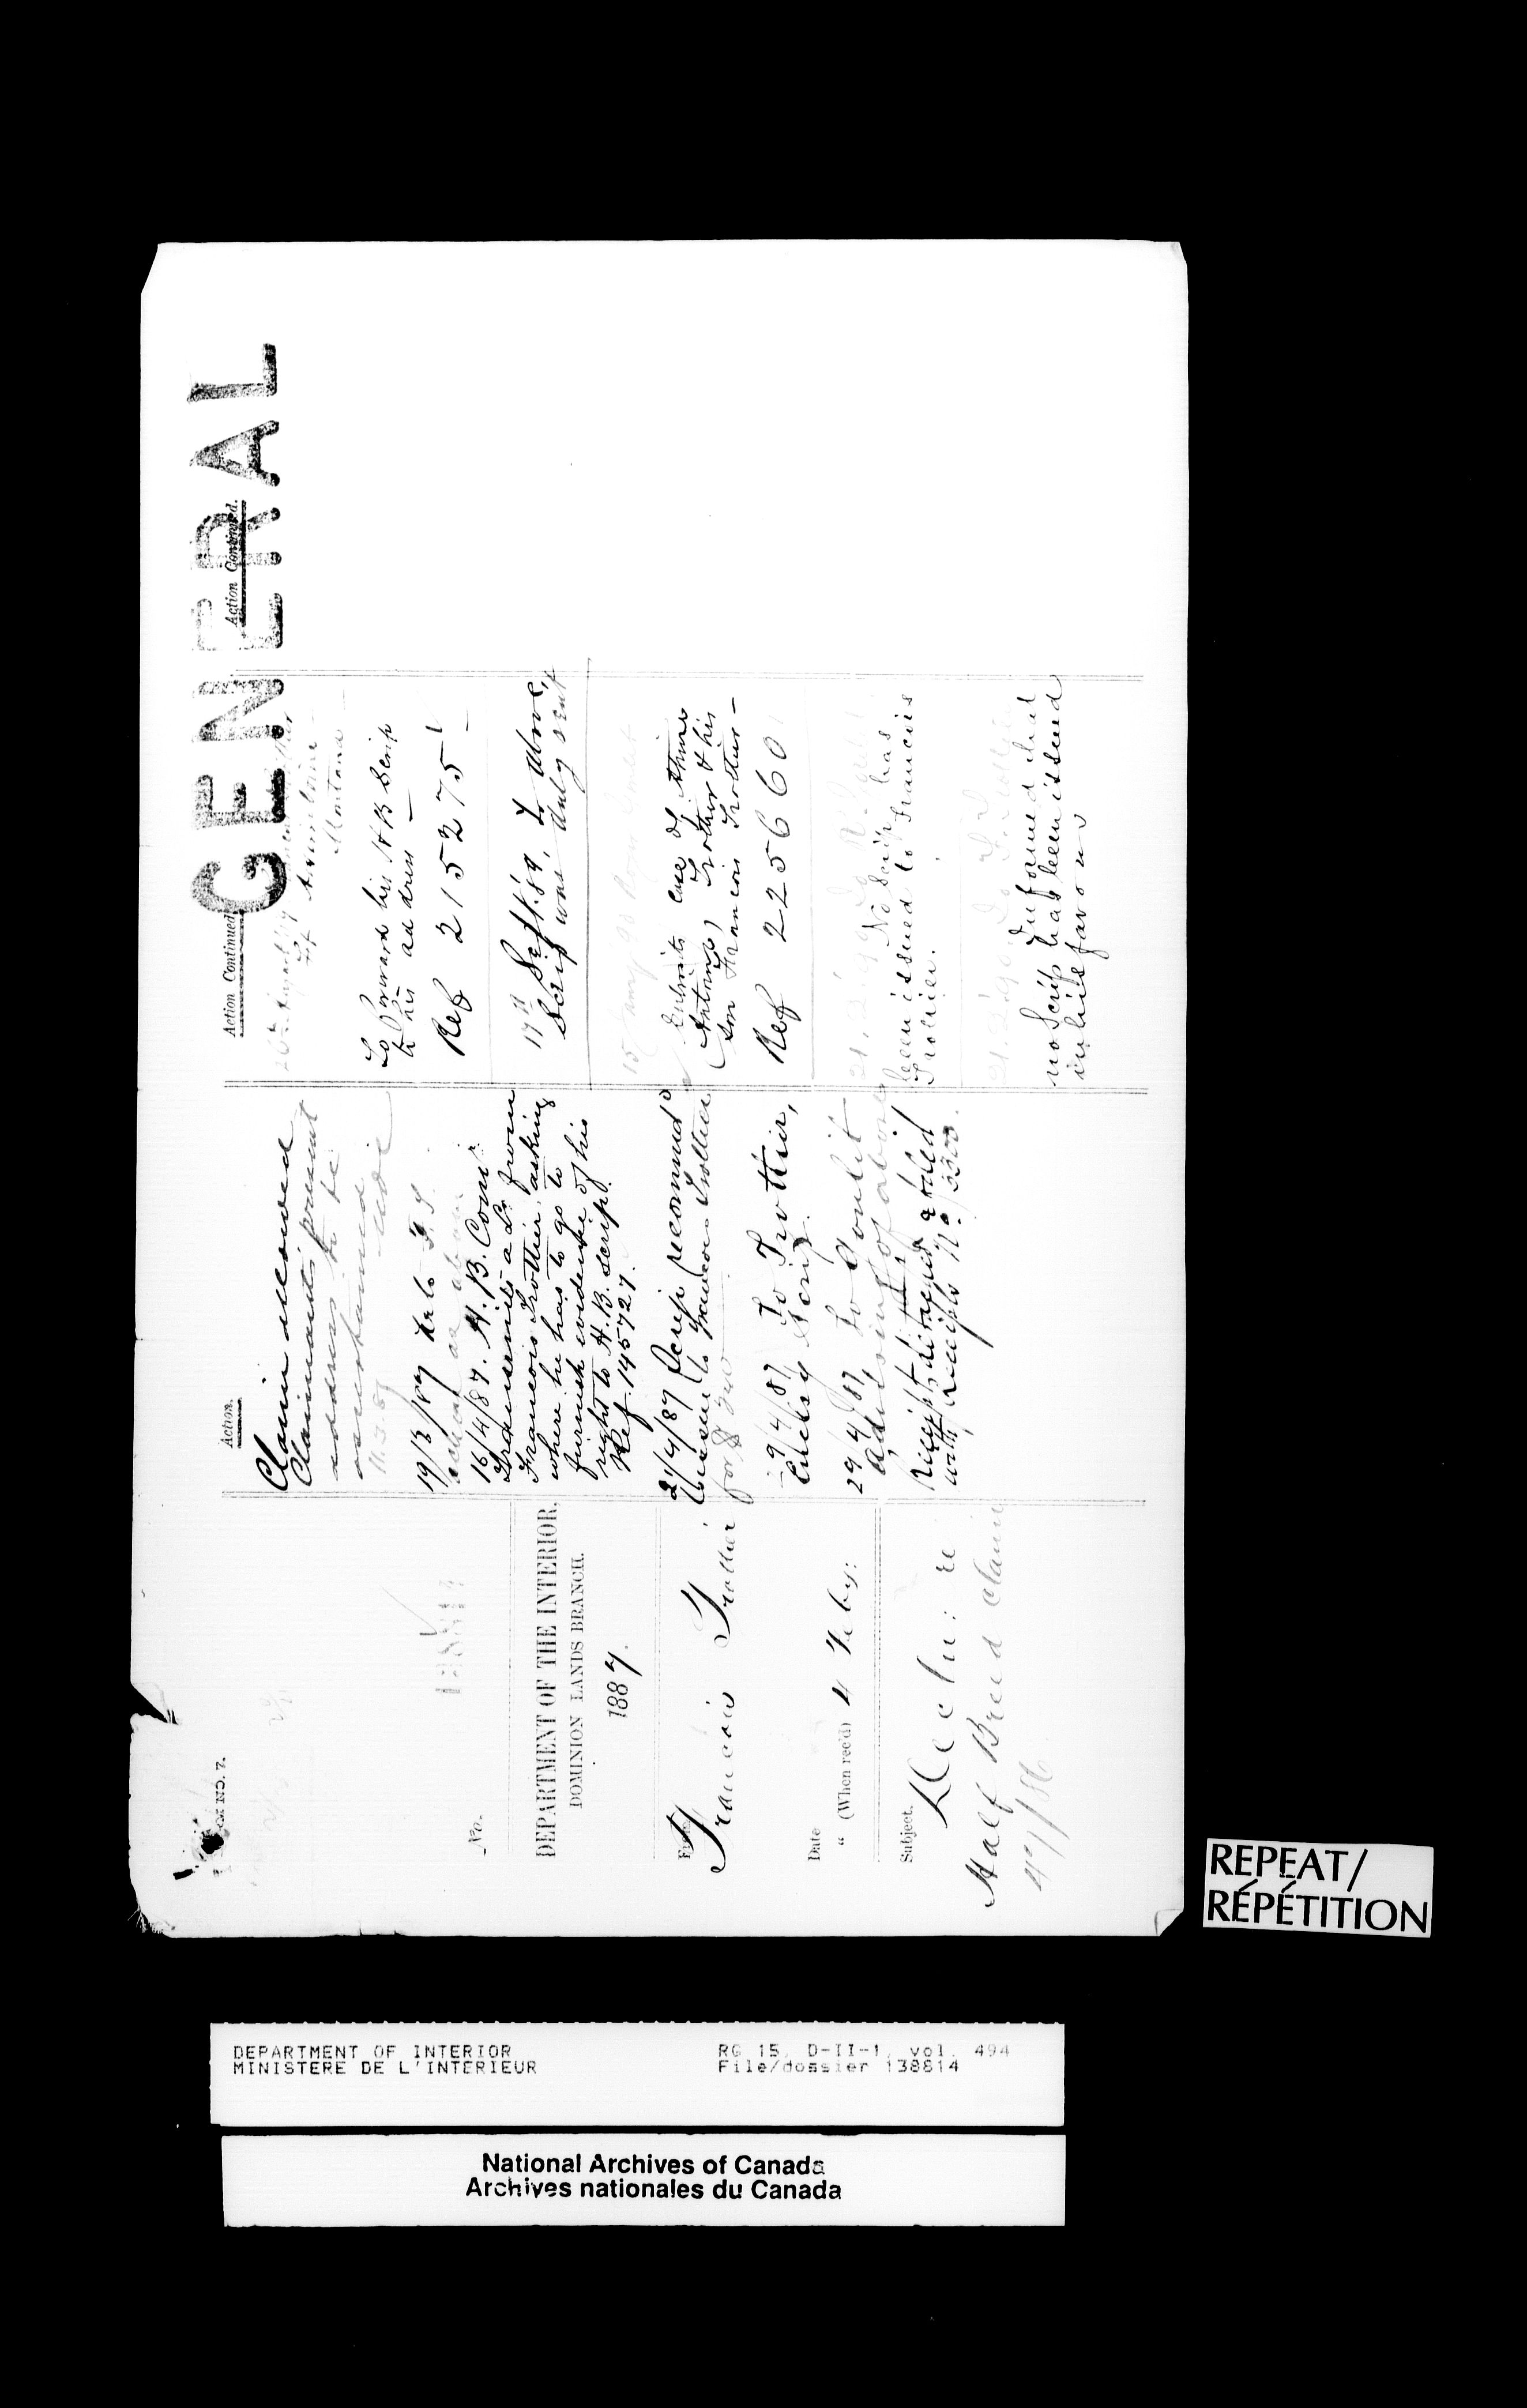 GENERAL
FORM NO. 7.
No.
138814
DEPARTMENT OF THE INTERIOR,
DOMINION LANDS BRANCH.
1887.
From
Francois Trottier
Date
" (When rec'd) 4 Feby:
Subject.
Half Breed claim
Action.
Claim allowed
Claimant's present
address to be
ascertained
11.3.87
19/3/87
16/4/87. H. B. Comr
Transmits a Lr from
Francois Trottier, asking
where he has to go to
furnish evidence of his
right to H. B. scrip.
Ref. 145727.
21/4/87 Scrip recommd
to Francois Trottier
for $
9/4/87 To Trottier,
Enclsg Scrip.
29/4/87 To Goulit
Advising of above
Receipt attached & filed
with Receipts No. 3300.
Action Continued.
of Assiniboine
Montana
To forward his H B Scrip
to his address
Ref 215275
17th Sept. '89, To Above,
Scrip was duly sent
15 Jany 90
Submits case of
(Antoine) Trottier & his
son Francois Trottier
Ref 225660
21.2.90
No Scrip has
been issued to Francois
Trottier.
21.2.90
Informed that
no Scrip has been issued
in his favor
Action Continued.
REPEAT/
RÉPÉTITION
DEPARTMENT OF INTERIOR
MINISTERE DE L'INTERIEUR
RG 15, D-II-1, vol. 494
File/dossier 138814
National Archives of Canada
Archives nationales du Canada